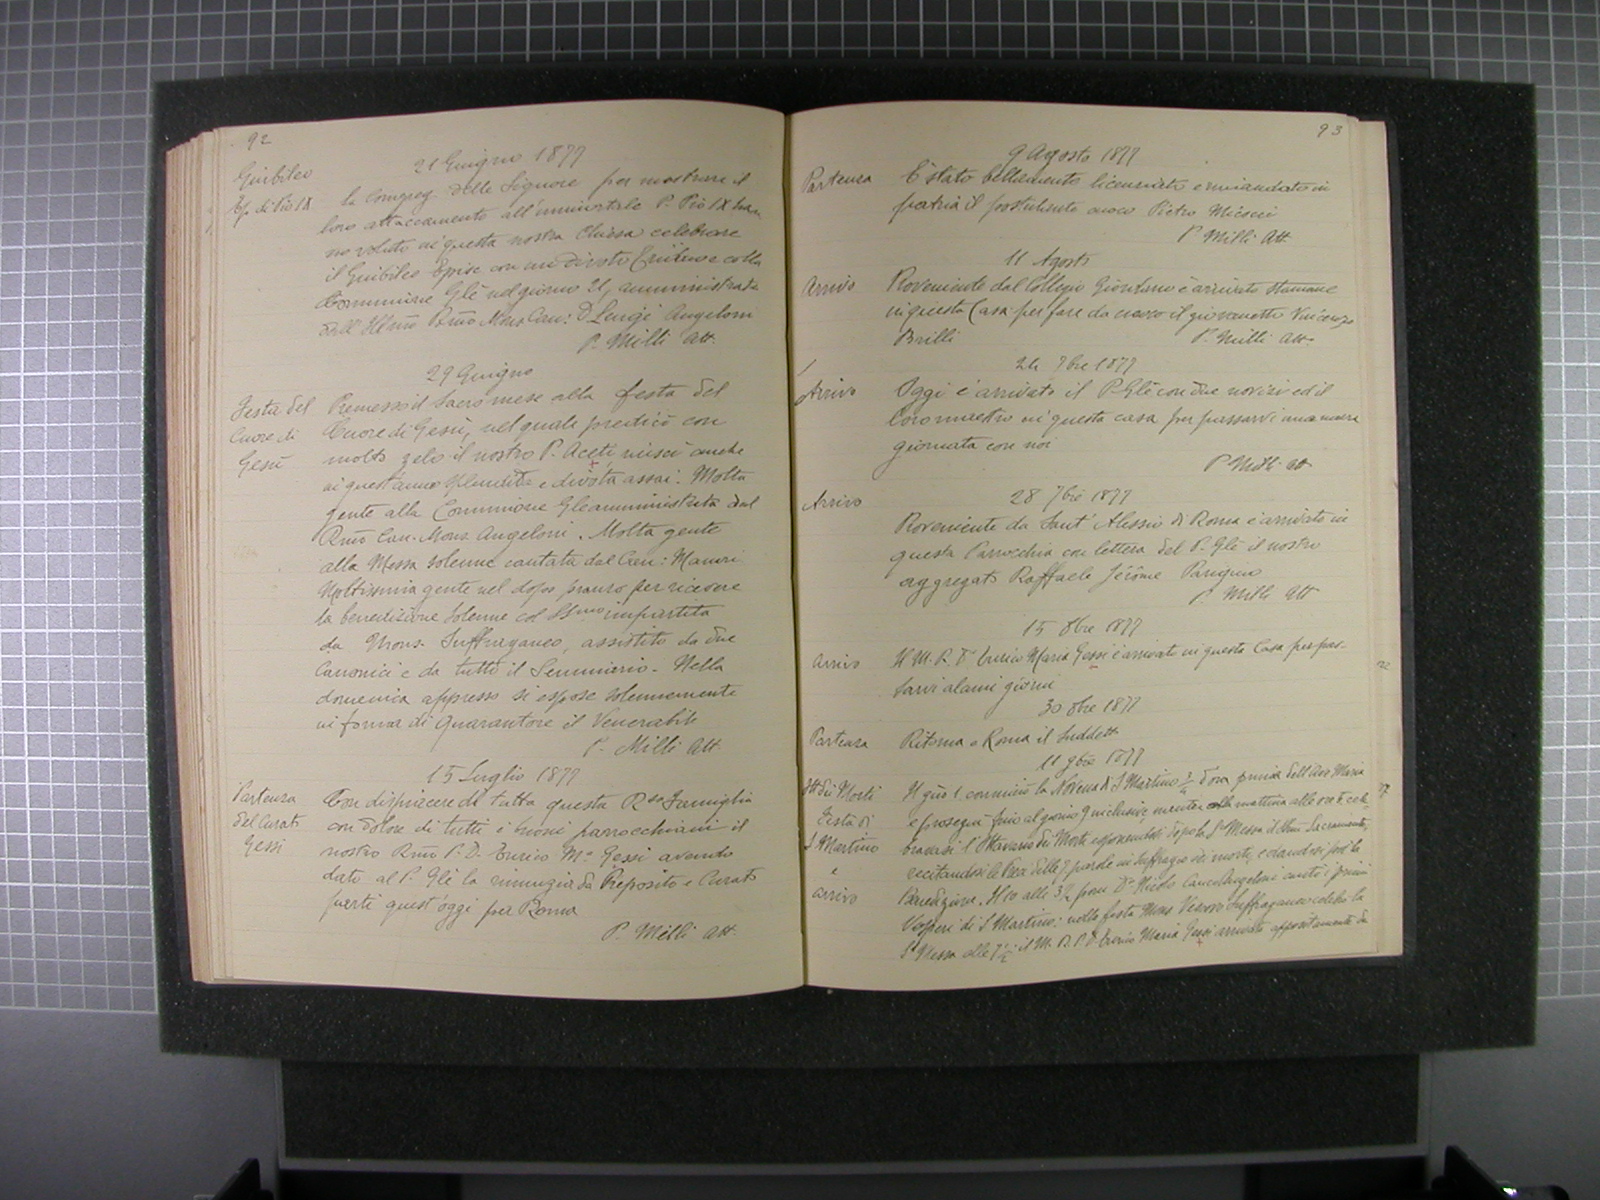 92
21 Giugno 1877
Giubileo
Ep. di Pio IX
la Congreg. delle Signore per mostrare il
loro attaccamento all'immortale P. Pio IX han
no voluto in questa nostra Chiesa celebrare
il Giubileo Episc con un divoto Triduo e colla
Comunione Gle nel giorno 21, amministrata
dall'Illmo Rmo Mons Can: D Luigi Angeloni
P. Milli Att.
29 Giugno
Festa del
Cuore di
Gesù
Premesso il Sacro mese alla festa del
Cuore di Gesù, nel quale predicò con
molto zelo il nostro P. Aceti riuscì anche
in quest'anno splendida e divota assai. Molta
gente alla Comunione Gle amministrata dal
Rmo Can. Mons. Angeloni. Molta gente
alla Messa solenne cantata dal Can:
Moltissima gente nel dopo pranzo per ricevere
la benedizione solenne col SSmo impartita
da Mons. Suffraganeo, assistito da due
Canonici e da tutto il Seminario. Nella
domenica appresso si espose solennemente
in forma di Quarantore il Venerabile
P. Milli Att.
15 Luglio 1877
Partenza
del Curato
Gessi
Con dispiacere di tutta questa Rsa Famiglia
con dolore di tutti i buoni parrocchiani il
nostro Rmo P. D. Enrico Ma Gessi avendo
dato al P. Gle la rinunzia da Preposito e Curato
partì quest'oggi per Roma
P. Milli Att.
93
9 Agosto 1877
Partenza
È stato bellamente licenziato e rimandato in
patria il postulante cuoco Pietro Micucci
P. Milli Att.
11 Agosto
Arrivo
Proveniente dal Collegio Giordano è arrivato stamane
in questa Casa per fare da cuoco il giovanetto Vincenzo
Brilli
P. Milli Att.
24 7bre 1877
Arrivo
Oggi è arrivato il P. Gle con due novizi ed il
loro maestro in questa casa per passarvi una mezza
giornata con noi
P. Milli att
28 7bre 1877
Arrivo
Proveniente da Sant'Alessio di Roma è arrivato in
questa Parrocchia con lettera del P. Gle il nostro
aggregato Raffaele Jérôme Parigino
P. Milli Att
15 8bre 1877
Arrivo
Il M. R. Pe Enrico Maria Gessi è arrivato in questa Casa per pas-
sarvi alcuni giorni
30 8bre 1877
Partenza
Ritorna a Roma il suddetto
11 9bre 1877
Ott. dei Morti
Festa di
S Martino
e
arrivo
Il gno 1. cominciò la Novena di S Martino ½ d'ora prima dell'Ave Maria
e proseguì fino al giorno 9 inclusive, mentre alla mattina alle ore 7 cele-
bravasi l'Ottavario dei Morti esponendosi dopo la Sa Messa il SSmo Sacramento,
recitandosi le Preci delle 7 parole in suffragio dei morti, e dandosi poi la
Benedizione. Il 10 alle 3½ pom Dn Nicola Canco Angeloni cantò i primi
Vesperi di S Martino: nella festa Mons Vescovo Suffraganeo celebrò la
Sa Messa alle 7½ il M. R. P. D. Enrico Maria Gessi arrivato appositamente da